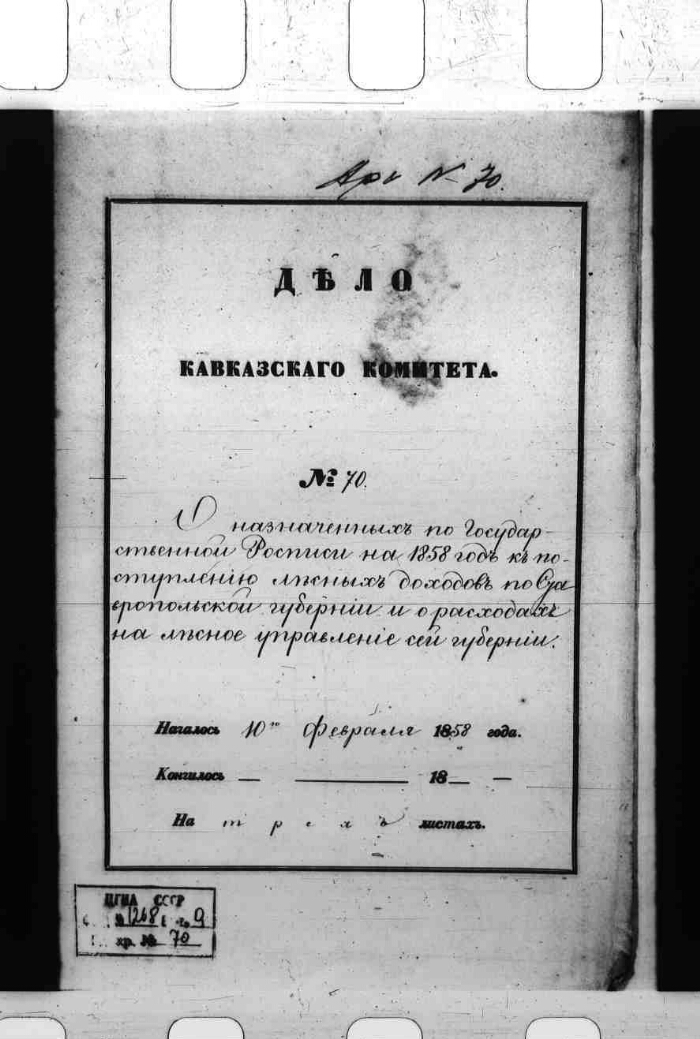 Арх № 70.
ДѢЛО
КАВКАЗСКАГО КОМИТЕТА.
№ 70.
О назначенныхъ по Государ-
ственной Росписи на 1858 годъ къ по-
ступленію лѣсныхъ доходовъ по Ста
вропольской губерніи и о расходахъ
на лѣсное управленіе сей губерніи.
Началось 10го Февраля 1858 года.
Кончилось — — 18 — —
На трехъ листахъ.
ЦГИА СССР
№ 1268 9
хр. № 70